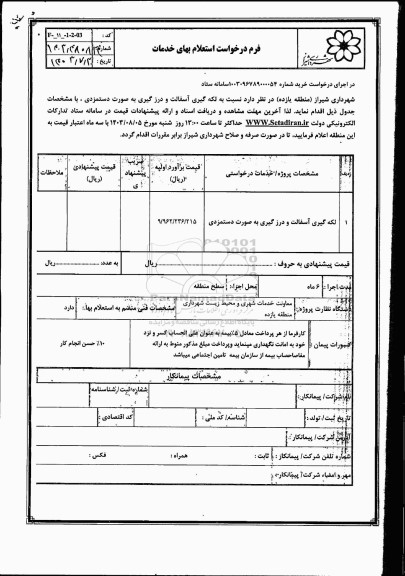 فرم درخواست استعلام بهای خدمات
کد : F-_11_-1-2-03
شماره:
تاریخ :
در اجرای درخواست خرید شماره ۱۰۰۳۰۹۶۷۸۹۰۰۰۰۵۴سامانه ستاد
شهرداری شیراز (منطقه یازده) در نظر دارد نسبت به لکه گیری آسفالت و درز گیری به صورت دستمزدی ، با مشخصات
جدول ذیل اقدام نماید. لذا آخرین مهلت مشاهده و دریافت اسناد و ارائه پیشنهادات قیمت در سامانه ستاد تدارکات
الکترونیکی دولت WWW.Setadiran.ir حداکثر تا ساعت ۱۳:۰۰ روز شنبه مورخ ۱۴۰۳/۰۸/۰۵ با سه ماه اعتبار قیمت به
این منطقه اعلام فرمایید، تا در صورت صرفه و صلاح شهرداری شیراز برابر مقررات اقدام گردد.
مشخصات پروژه/خدمات درخواستی قیمت برآورد اولیه (ریال) ضریب پیشنهادی قیمت پیشنهادی (ریال) ملاحظات
۱ لکه گیری آسفالت و درز گیری به صورت دستمزدی ۹/۹۶۲/۲۳۶/۲۱۵
قیمت پیشنهادی به حروف : ریال به عدد: ریال
مدت اجرا : ۶ ماه محل اجرا: سطح منطقه
دستگاه نظارت پروژه: معاونت خدمات شهری و محیط زیست شهرداری منطقه یازده مشخصات فنی منضم به استعلام بها: دارد
کسورات پیمان : کارفرما از هر پرداخت معادل ۵٪بیمه به عنوان علی الحساب کسر و نزد
خود به امانت نگهداری مینماید وپرداخت مبلغ مذکور منوط به ارائه
مفاصاحساب بیمه از سازمان بیمه تامین اجتماعی میباشد
۱۰٪ حسن انجام کار
مشخصات پیمانکار
نام شرکت/ پیمانکار: شماره ثبت/ شناسنامه
تاریخ ثبت/ تولد: شناسه/ کد ملی : کد اقتصادی :
آدرس شرکت/ پیمانکار :
شماره تلفن شرکت/ پیمانکار : ثابت : همراه : فکس :
مهر و امضاء شرکت/ پیمانکار: